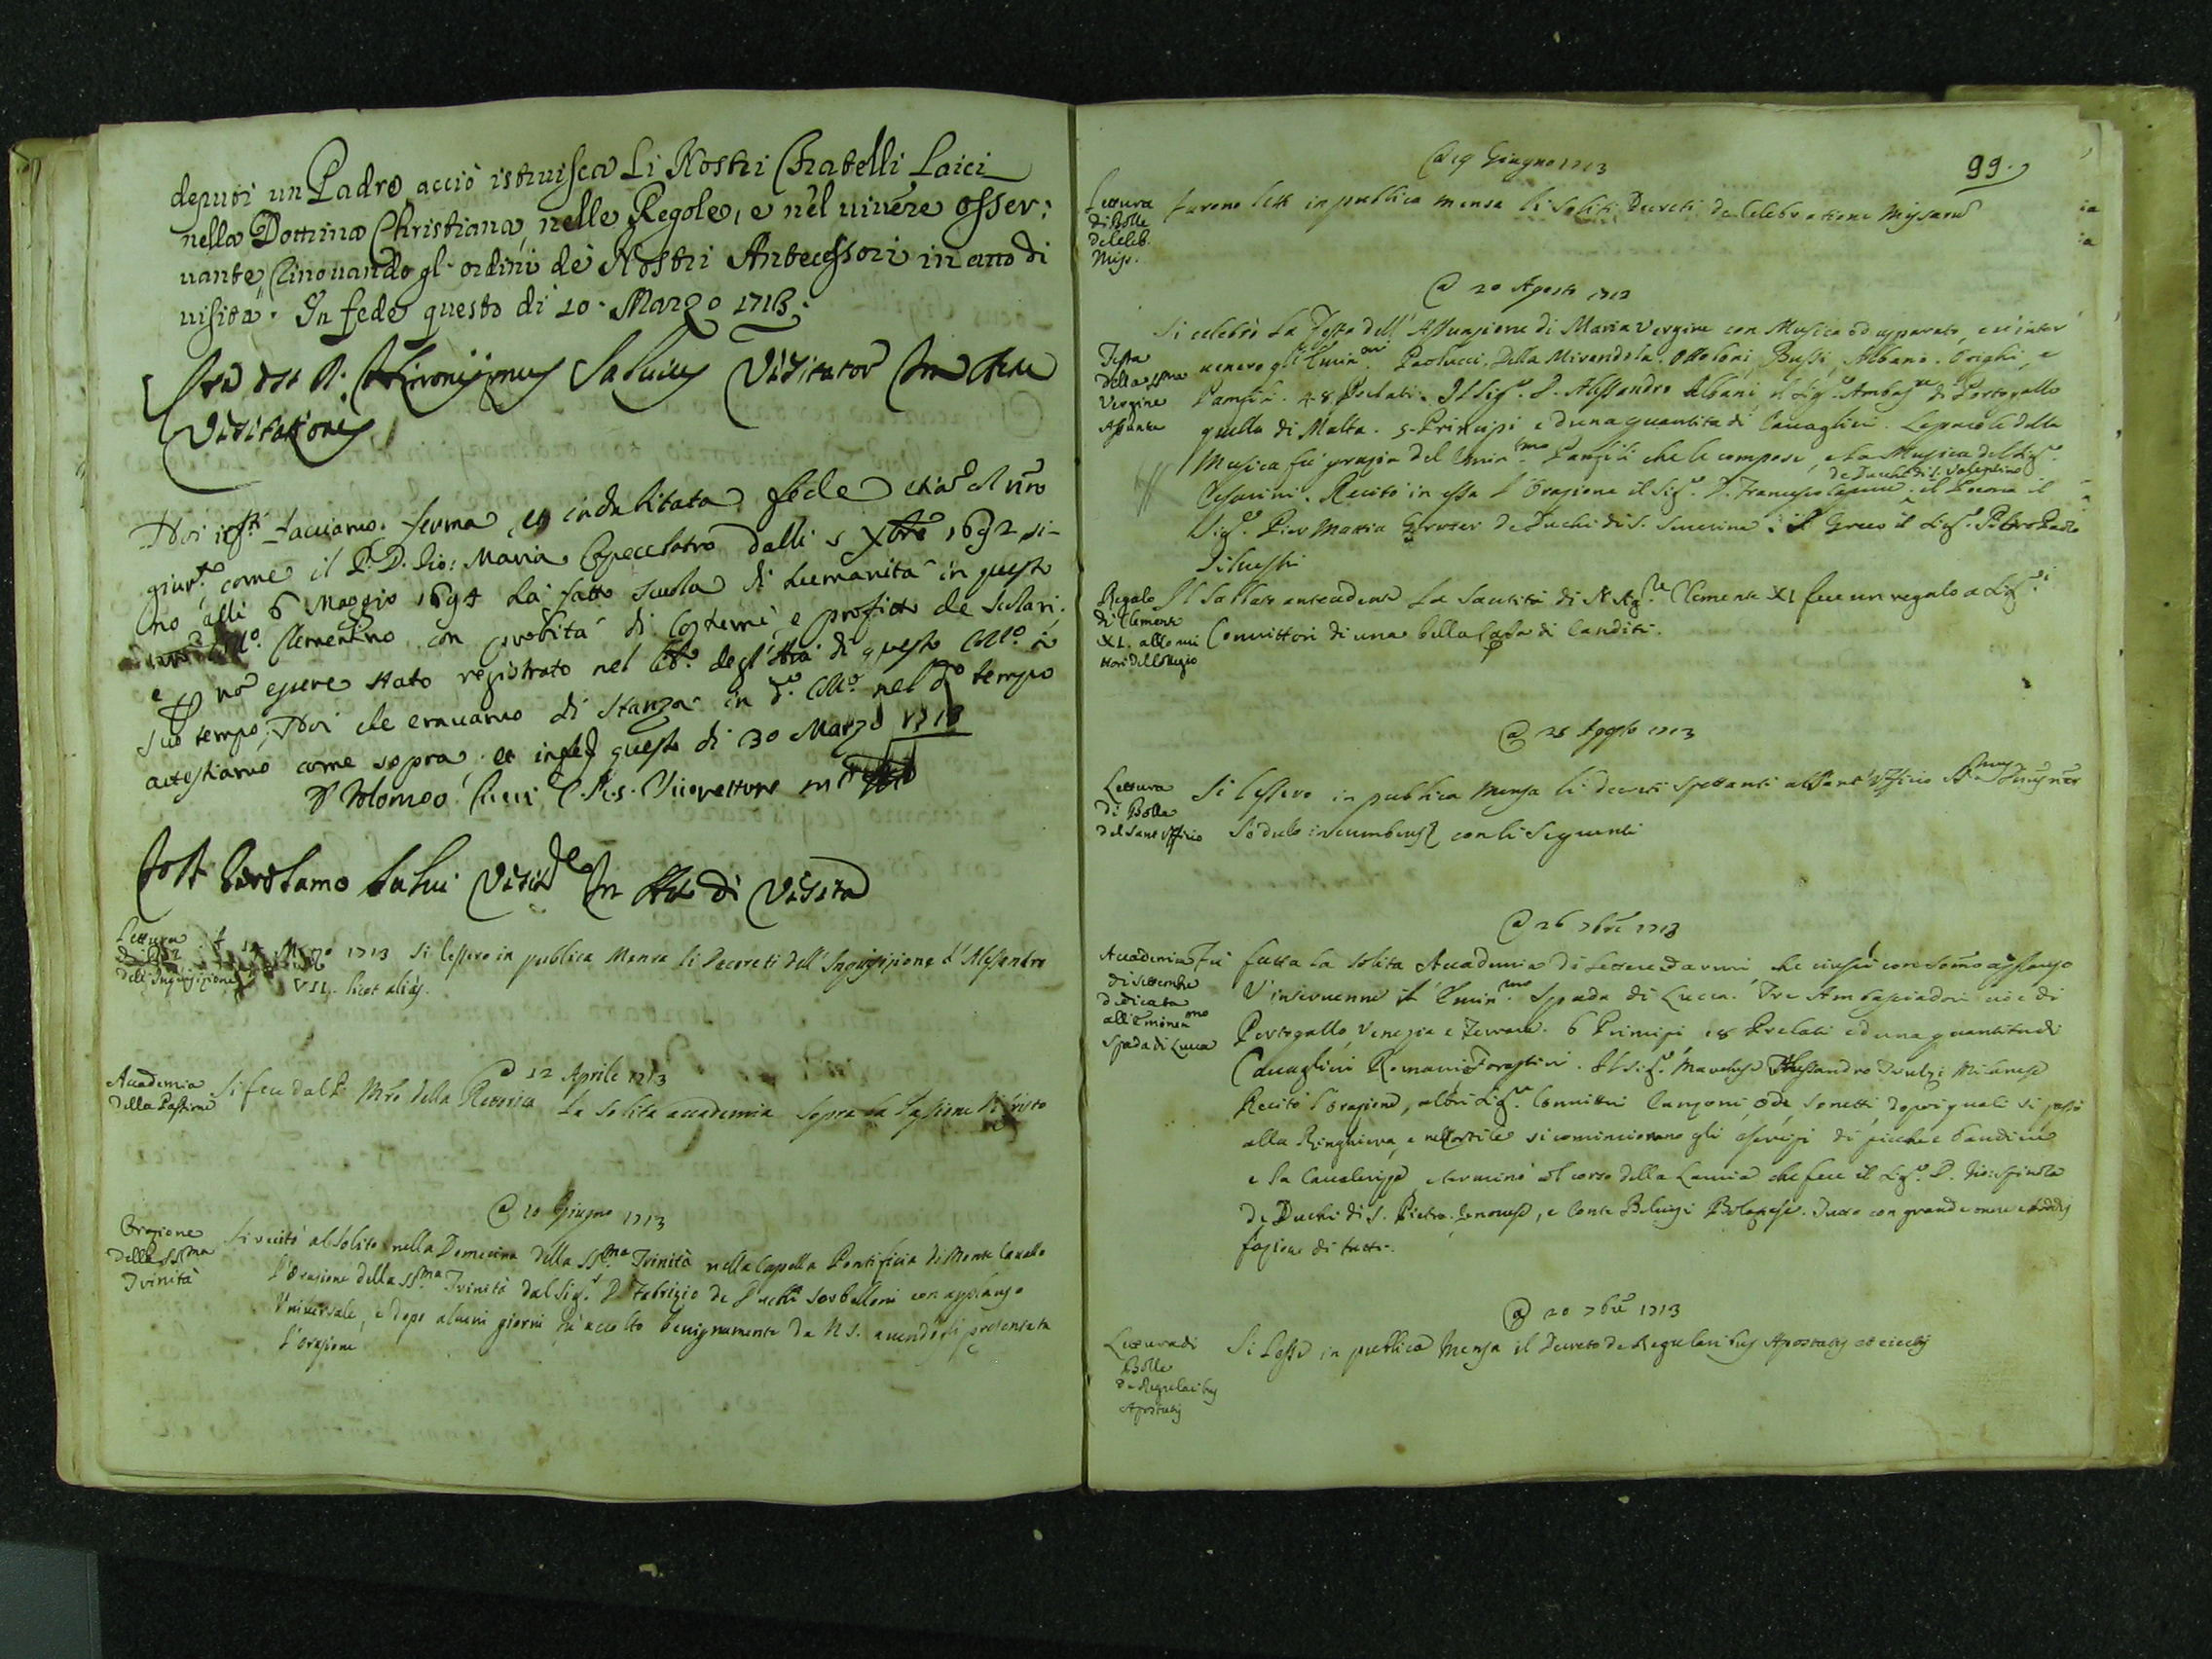 deputi un Padre, acciò istruisca li Nostri Fratelli Laici
nella Dottrina Christiana, nelle Regole, e nel uiuere osser:
uante, rinouando gl'ordini de Nostri Antecessori in atto di
uisita. In fede questo di 20. Marzo 1713.
Ita est D. Hieronijmus Saluius Visitator In Actu
Visitationis
Noi infri facciamo ferma, et indubitata fede
giur.to come il P. D. Gio: Maria dalli 5 Xbre 1692 si-
no alli 6 Maggio 1694 hà fatto scuola di humanità in questo
Clementino con probità di costumi, e profitto de scolari,
e p nõ essere stato registrato nel lib.o degl'Atti di questo Coll.o à
suo tempo; Noi che erauamo di stanza in d.o Coll.o nel d.o tempo
attestiamo come sopra, et in fede questo di 30 Marzo 1713
C. R. S. Vicerettore
Girolamo Salui Visit.re In Atto di Visita
Lettura
dell'Inquisizione
Marzo 1713 Si lessero in publica Mensa li Decreti dell'Inquisizione d'Alessandro
VII. licet aliàs.
@ 12 Aprile 1713
Accademia
della Passione
Si fece dal P. Mrõ della Retorica la solita accademia sopra la Passione di Cristo
@ 10 Giugno 1713
Orazione
della SSma
Trinità
Si recitò al solito nella Domenica della SS.ma Trinità nella Capella Pontificia di Monte Cauallo
l'Orazione della SS.ma Trinità dal Sig.r D. Fabrizio de Duchi Serbelloni con applauso
Vniuersale, e dopo alcuni giorni fù accolto benignamente da N.S. auendogli presentata
l'orazione
99.
@ 19 Giugno 1713
Lettura
di Bolle
de Celeb.
Miss.
Furono lette in publica mensa li soliti Decreti de Celebratione Missarũ
@ 20 Agosto 1713
Festa
della SSma
Vergine
Assunta
Si celebrò la Festa dell'Assunzione di Maria Vergine con Musica ed apparato, e u'inter
uenero gl'Emin.mi Paolucci, Della Mirandola, Ottoboni, Bussi, Albano, Orighi, e
Panfili. 48 Prelati. Il Sig.r D. Alessandro Albani, il Sig.r Ambas.re di Portogallo
quello di Malta. 5 Principi ed una quantità di Cauaglieri. Le parole della
Musica fù grazia del Emin.mo Panfili che le compose, e la Musica del Sig.r
Cesarini. Recitò in essa l'Orazione il Sig.r D. Francesco de Duchi di il Poema il
Sig.r Pier Maria de Duchi di S. Seuerina, il Greco il Sig.r Pietro Paolo
Siluestri
Regalo
di Clemente
XI. alli
uittori del Collegio
Il Sabbato antecedente La Santità di N. Sig.re Clemente XI fece un regalo a Sig.ri
Conuittori di una bella di Canditi.
@ 25 Agosto 1713
Lettura
di Bolla
del Sant'Vfficio
Si lessero in publica Mensa li decreti spettanti al Sant'Vfficio
Sedulo incumbens con li seguenti
@ 26 7bre 1713
Accademia
di Settembre
dedicata
all'Eminenmo
Spada di Lucca
Fù fatta la solita Accademia di Lettere ed armi, che riuscì con sommo applauso
V'interuenne l'Emin.mo Spada di Lucca. Tre Ambasciadori cioè di
Portogallo, Venezia e Ferrara. 6 Principi, 18 Prelati ed una quantità di
Cauaglieri Romani e Forastieri. Il Sig.r Marchese Alessandro Milanese
Recitò l'orazione, altri Sig.ri Conuittori Canzoni, ode, sonetti, dopo i quali si passò
alla Ringhiera, e nel Cortile si cominciorono gli esercizi di picche e bandiere
e la Caualerizza, e terminò col corso della Lancia che fece il Sig.r D. Gio: Spinola
de Duchi di S. Pietro Genouese, e Conte Bolognese. Tutto con grand'onore e sodis
fazione di tutti.
@ 20 7bre 1713
Lettura di
Bolle
de Regularibus
Apostatis
Si lesse in publica Mensa il Decreto de Regularibus Apostatis et eiectis